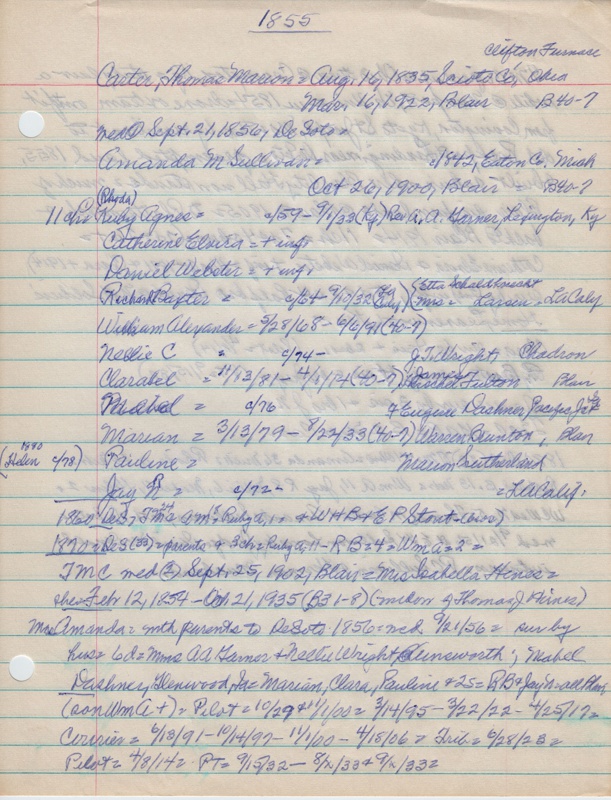 1855
Clifton Furnace
Carter, Thomas Marion = Aug. 16, 1835, Scioto Co, Ohio
Mar, 16, 1922, Blair B40-7
med ① Sept. 21, 1856, De Soto =
Amanda M Sullivan = c/1842, Eaton Co, Mich
Oct 26, 1900, Blair = B40-7
(Rhoda)
11 ch = Ruby Agnes = c/59 - 9/1/33 (Ky) Rev A. A. Garner, Lexington, Ky
Catherine Elvira = + inf,
Daniel Webster = + inf,
Richard Baxter = c/64 9/10/32 (Etta Schaldknecht
Mrs = Larsen = LaCalif
William Alexander = 5/28/68 - 6/6/91 (40-7)
Nellie C = c/74 - J T Wright, Chadron
Clarabel = 11/13/81 - 4/1/74 (40-7) James Fulton Blair
Mabel = c/76 Eugene Dashner Pacific Jct
Marian = 3/13/79 - 8/22/33 (40-7) Warren Bunton, Blair
1880
(Helen c/78) Pauline = Marion Sutherland
Jay R = c/72 - = LA Calif.
1860 = DeS, TM 24 Am 18 Ruby a, 11 + WHB & EP Stout
1870 = DeS (33) = parents & 3ch = Ruby a, 11 - RB = 4 = Wm A = 2 =
TMC med ② Sept. 25, 1902, Blair = Mrs Isabella Hines =
she = Febr 12, 1854 - Oct 21, 1935 (B31-8) (widow of Thomas J Hines)
Mrs Amanda = with parents to DeSoto 1856 = med 9/21/56 = sur by
hus = 6d = Mmes AA Garner & Nellie Wright, Ainsworth; Mabel
Dashner, Glenwood, Ia = Marian, Clara, Pauline & 2S = RB & Jay R = all
(son Wm A +) = Pilot = 10/29 + 11/1/00 = 3/14/95 - 3/22/22 - 4/25/17 =
Courier = 6/13/91 - 10/14/97 - 11/1/00 - 4/15/06 = Trib = 6/28/23 =
Pilot = 4/8/14 = PT = 9/15/32 - 8/x/33 & 9/x/33 =